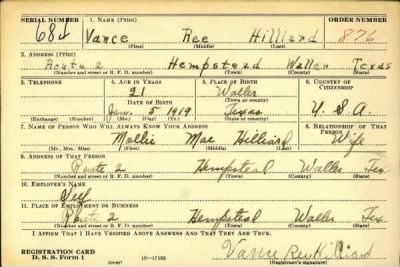 SERIAL NUMBER 1. NAME (Print) ORDER NUMBER
684 Vance Ree Hilliard 876
(First) (Middle) (Last)
2. ADDRESS (Print)
Route 2 Hempstead Waller Texas
(Number and street or R. F. D. number) (Town) (County) (State)
3. TELEPHONE 4. AGE IN YEARS 5. PLACE OF BIRTH 6. COUNTRY OF CITIZENSHIP
21 Waller
DATE OF BIRTH (Town or county)
Jan. 5 1919 Texas U. S. A.
(Exchange) (Number) (Mo.) (Day) (Yr.) (State or country)
7. NAME OF PERSON WHO WILL ALWAYS KNOW YOUR ADDRESS 8. RELATIONSHIP OF THAT PERSON
Mollie Mae Hilliard Wife
(Mr., Mrs., Miss) (First) (Middle) (Last)
9. ADDRESS OF THAT PERSON
Route 2 Hempstead Waller Tex.
(Number and street or R. F. D. number) (Town) (County) (State)
10. EMPLOYER'S NAME
Self
11. PLACE OF EMPLOYMENT OR BUSINESS
Route 2 Hempstead Waller Tex.
(Number and street or R. F. D. number) (Town) (County) (State)
I AFFIRM THAT I HAVE VERIFIED ABOVE ANSWERS AND THAT THEY ARE TRUE.
REGISTRATION CARD
D. S. S. Form 1 (over) Vance Ree Hilliard
(Registrant's signature)